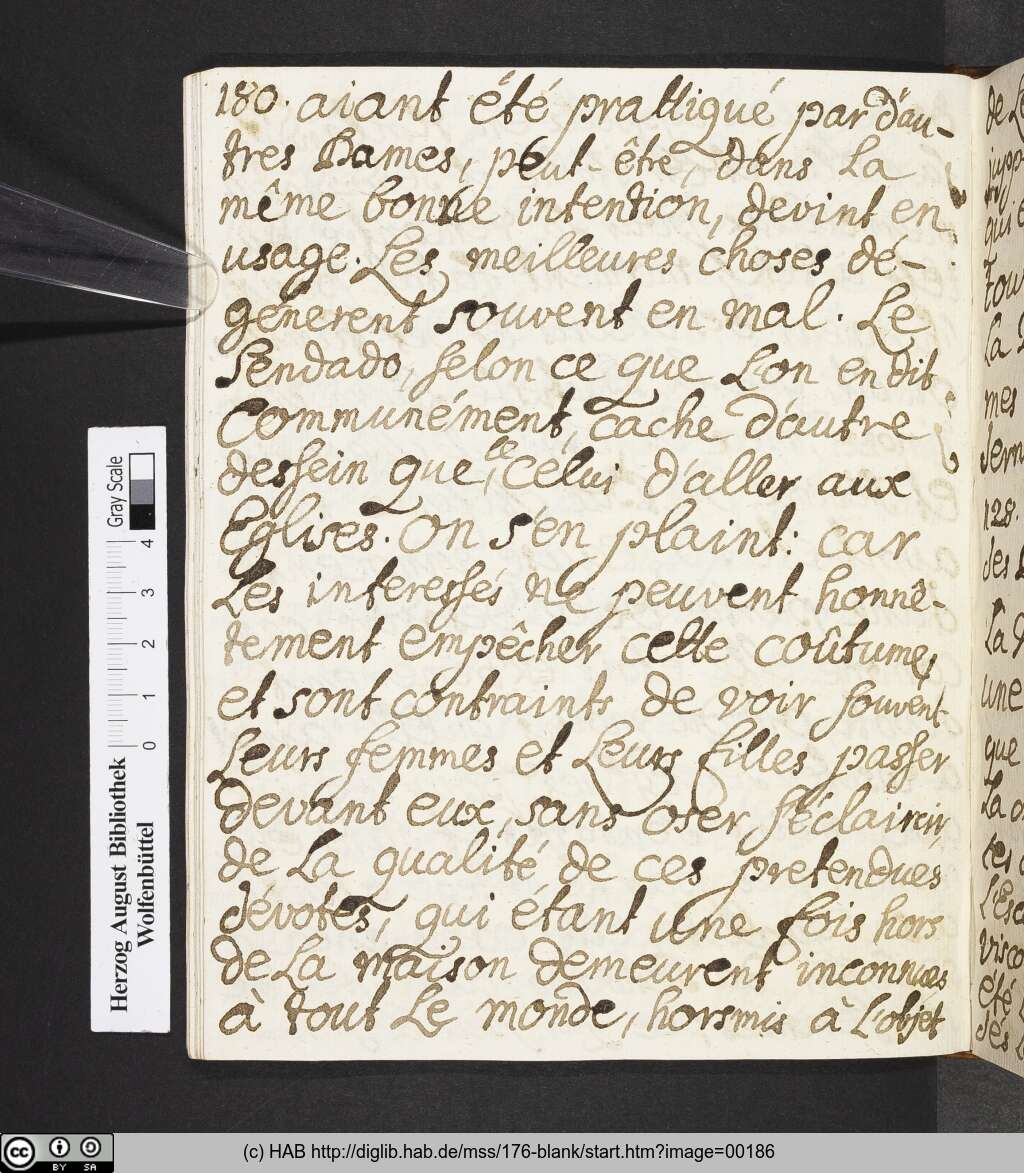 180. aiant été prattiqué par d'au-
tres Dames, peut-être, dans La
même bonne intention, devint en
usage. Les meilleures choses dé-
génerent souvent en mal. Le
Sendado, selon ce que L'on en dit
Communément, cache d'autre
dessein que, ce Célui d'aller aux
Eglises. On s'en plaint: car
Les interessés ne peuvent honnê-
tement empêcher cette coûtume,
et sont contraints de voir souvent
Leurs femmes et Leurs filles passer
devant eux, sans oser s'éclaircir
de La qualité de ces pretendues
dévotes, qui étant une fois hors
de La maison demeurent inconnues
à tout Le monde, horsmis à L'objet
de
qui
La
mes
128.
des
La
une
que
La
été
Gray Scale
4
3
2
1
0
Herzog August Bibliothek
Wolfenbüttel
cc BY SA
(c) HAB http://diglib.hab.de/mss/176-blank/start.htm?image=00186